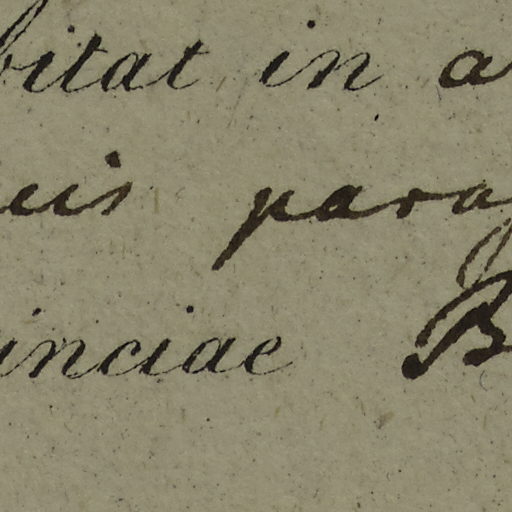 bitat in a
cis parag
inciae B